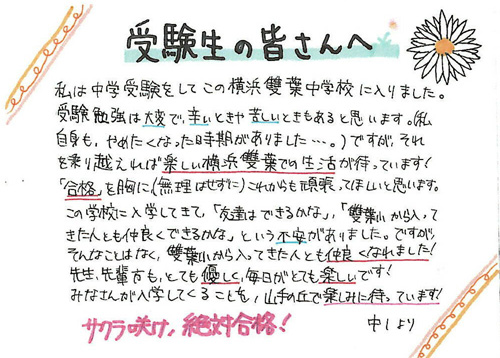 受験生の皆さんへ
私は中学受験をしてこの横浜雙葉中学校に入りました。
受験勉強は大変で、辛いときや苦しいときもあると思います。(私
自身も、やめたくなった時期がありました…。)ですが、それ
を乗り越えれば楽しい横浜雙葉での生活が待っています!
「合格」を胸に(無理はせずに)これからも頑張ってほしいと思います。
この学校に入学してきて、「友達はできるかな」、「雙葉小から入って
きた人とも仲良くできるかな」という不安がありました。ですが、
そんなことはなく、雙葉小から入ってきた人とも仲良くなれました!
先生、先輩方も、とても優しく、毎日がとても楽しいです!
みなさんが入学してくることを、山手の丘で楽しみに待っています!
サクラ咲け、絶対合格!
中1より